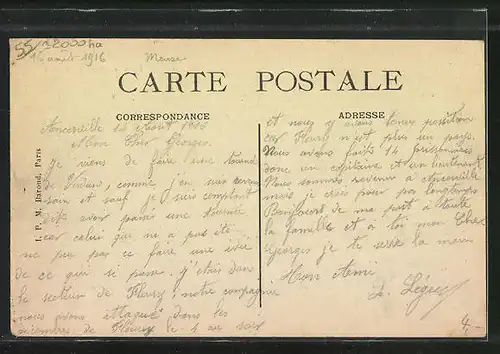 55/ 12000 ha
14 août 1916 Meuse
CARTE POSTALE
CORRESPONDANCE
ADRESSE
I. P. M. Paris
Ancerville 14 Aout 1916
Mon Cher Georges.
je viens de faire une tournée
de Verdun, comme j'en suis revenu
sain et sauf je suis comptant
avoir passé une tournée
car celui que ne a pas été
ne peu pas ce faire une idée
de ce qui si passe. j'étais dans
le secteur de Fleury, notre compagnie
nous avons attaqué dans les
décombres de Fleury le 1 au soir
et nous y avons tenu position
car Fleury n'est plus un pays.
Nous avons faits 14 prisonniers
donc un capitaine et un lieutenant
Nous sommes revenu à Ancerville
mais je crois pour pas longtemps
Bonjour de ma part à toute
la famille et à toi mon Cher
Georges je te serre la main
Ton Ami
4.-